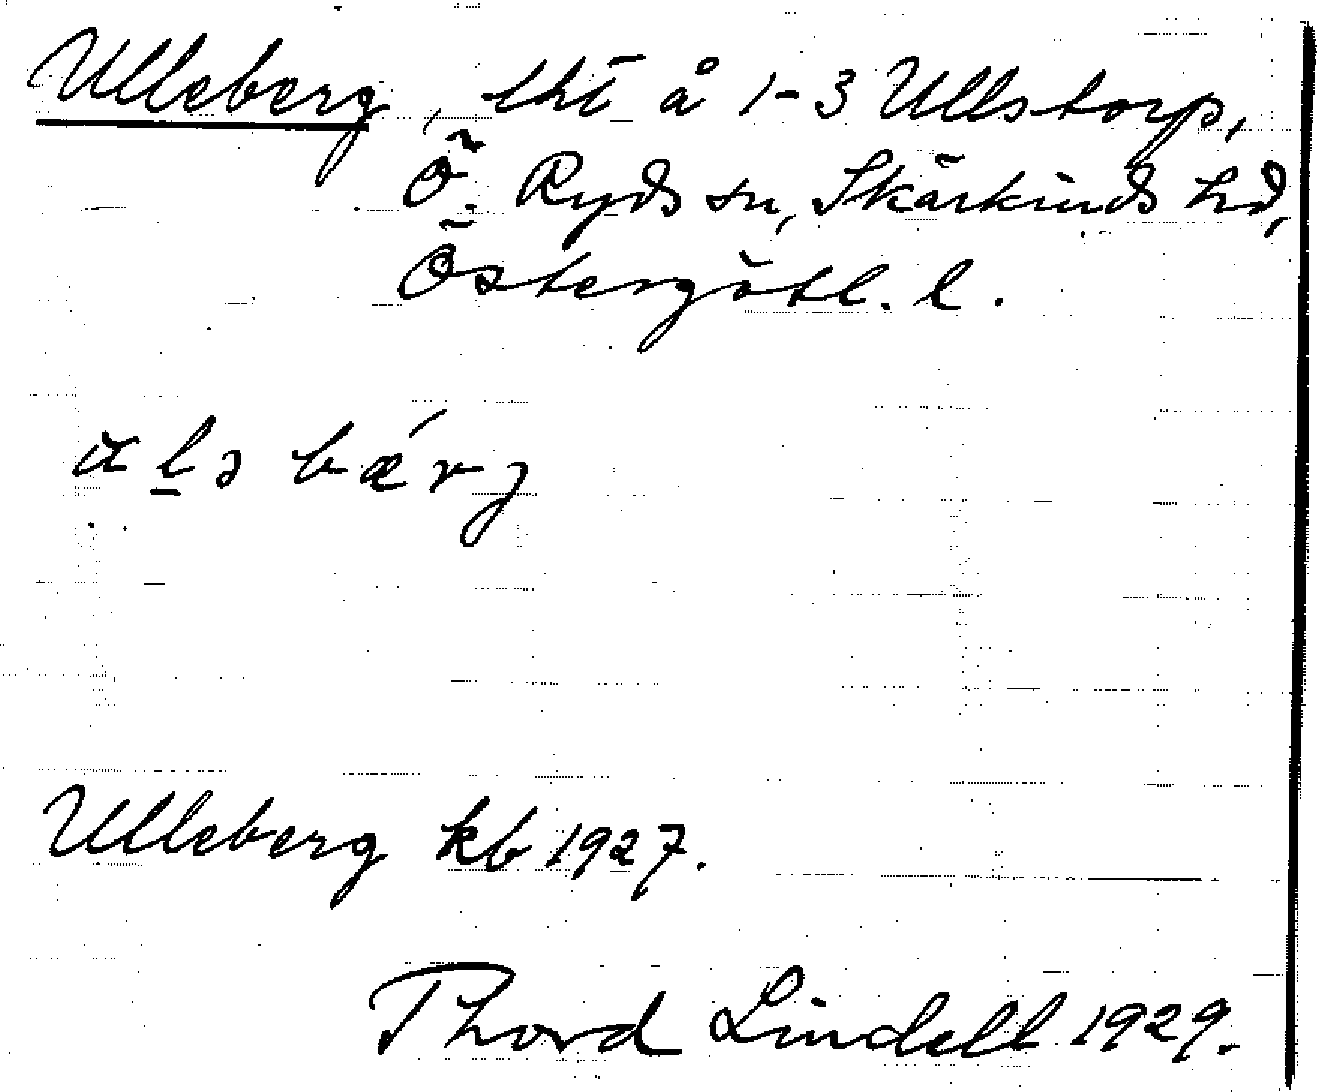 Ulleberg, tht å 1-3 Ullstorp,
Ö. Ryds sn, Skärkinds hd,
Östergötl. l.
Ulleberg kb 1927.
Thord Lindell 1929.